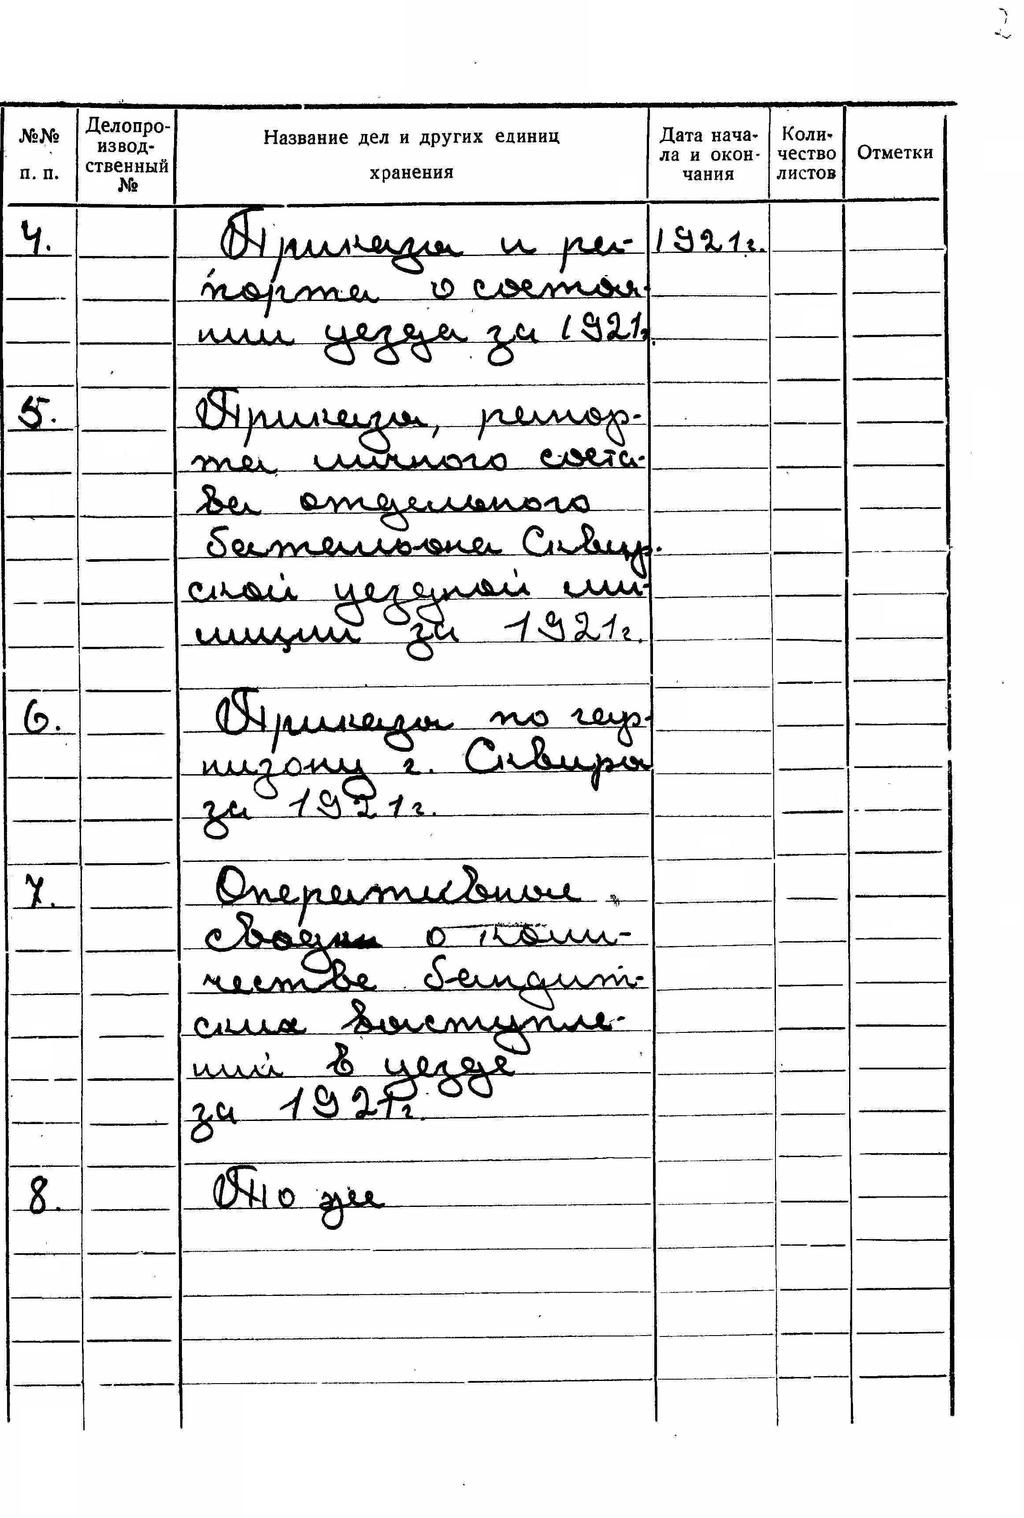 2
№№ п. п.
Делопро-
извод-
ственный
№
Название дел и других единиц
хранения
Дата нача-
ла и окон-
чания
Коли-
чество
листов
Отметки
4. Приказы и ра- 1921г.
порты о состоя-
нии уезда за 1921г.
5. Приказы, рапор-
ты личного соста-
ва отдельного
батальона Сквир-
ской уездной ми-
лиции за 1921г.
6. Приказы по гар-
низону г. Сквира
за 1921г.
7. Оперативные
сводки о коли-
честве бандит-
ских выступле-
ний в уезде
за 1921г.
8. То же